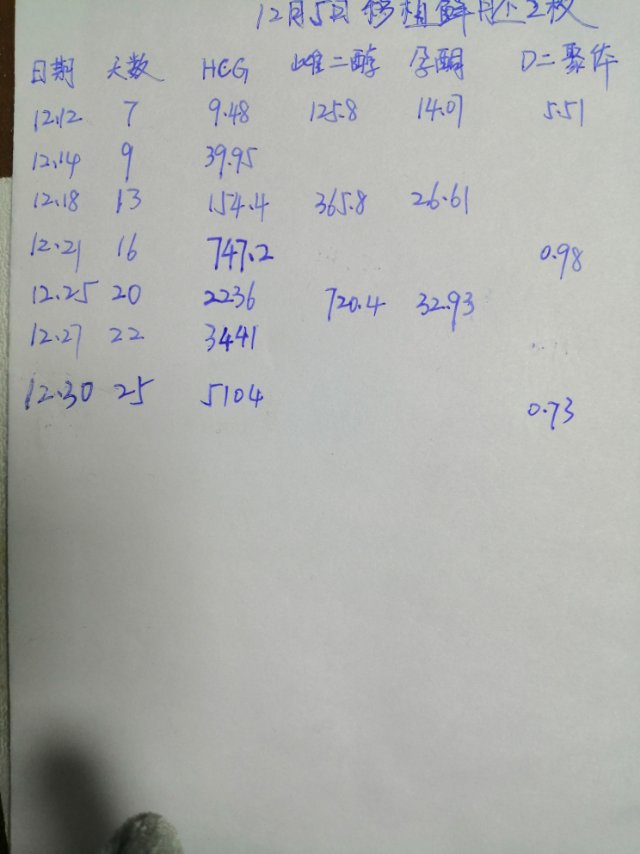 12月5日移植鲜胚2枚
日期 天数 HCG 雌二醇 孕酮 D二聚体
12.12 7 9.48 125.8 14.07 5.51
12.14 9 39.95
12.18 13 154.4 365.8 26.61
12.21 16 747.2 0.98
12.25 20 2236 720.4 32.93
12.27 22 3441
12.30 25 5104 0.73